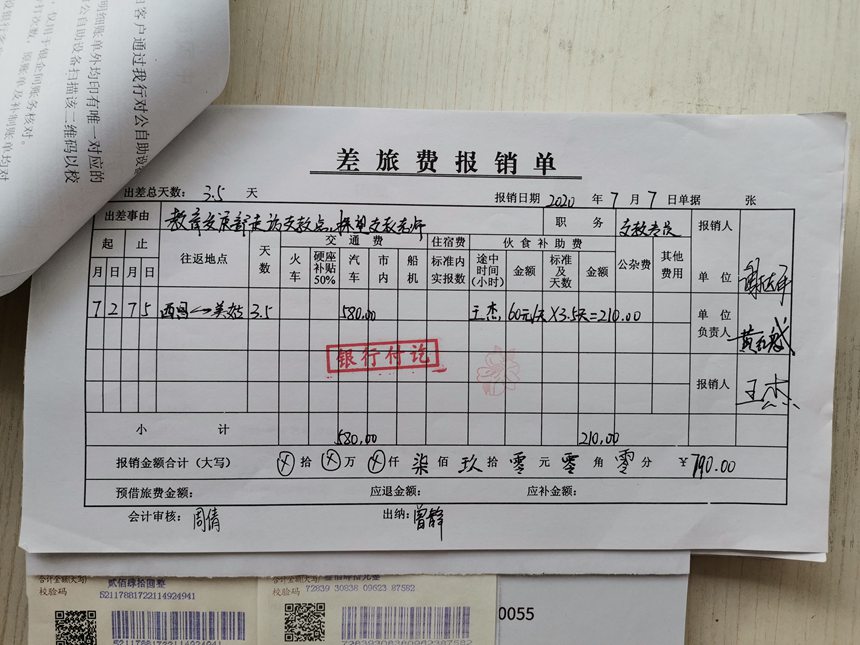 差旅费报销单
出差总天数： 3.5 天 报销日期 2020 年 7 月 7 日 单据 张
出差事由 教育发展部走访支教点，探望支教老师 职务 支教专员 报销人
起 止 往返地点 天数 交通费 住宿费 伙食补助费 公杂费 其他费用 单位
月 日 月 日 火车 硬座补贴50% 汽车 市内 船机 标准内实报数 途中时间(小时) 金额 标准及天数 金额
7 2 7 5 西昌↔美姑 3.5 580.00 王杰，60元/天×3.5天=210.00 单位负责人
银行付讫
报销人 王杰
小计 580.00 210.00
报销金额合计（大写） ⊗ 拾 ⊗ 万 ⊗ 仟 柒 佰 玖 拾 零 元 零 角 零 分 ￥790.00
预借旅费金额： 应退金额： 应补金额：
会计审核： 周倩 出纳： 曾静
客户通过我行对公自助设备
明细账单外均印有唯一对应的
公自助设备扫描该二维码以校
仅用于银企间账务核对。
打次数，原账单及补制账单均对
合计金额(大写) 贰佰肆拾圆整
校验码 52117881722114924941
52117881722114924941
合计金额(大写)
校验码 72839 30838 09623 87582
72839308380962387582
0055